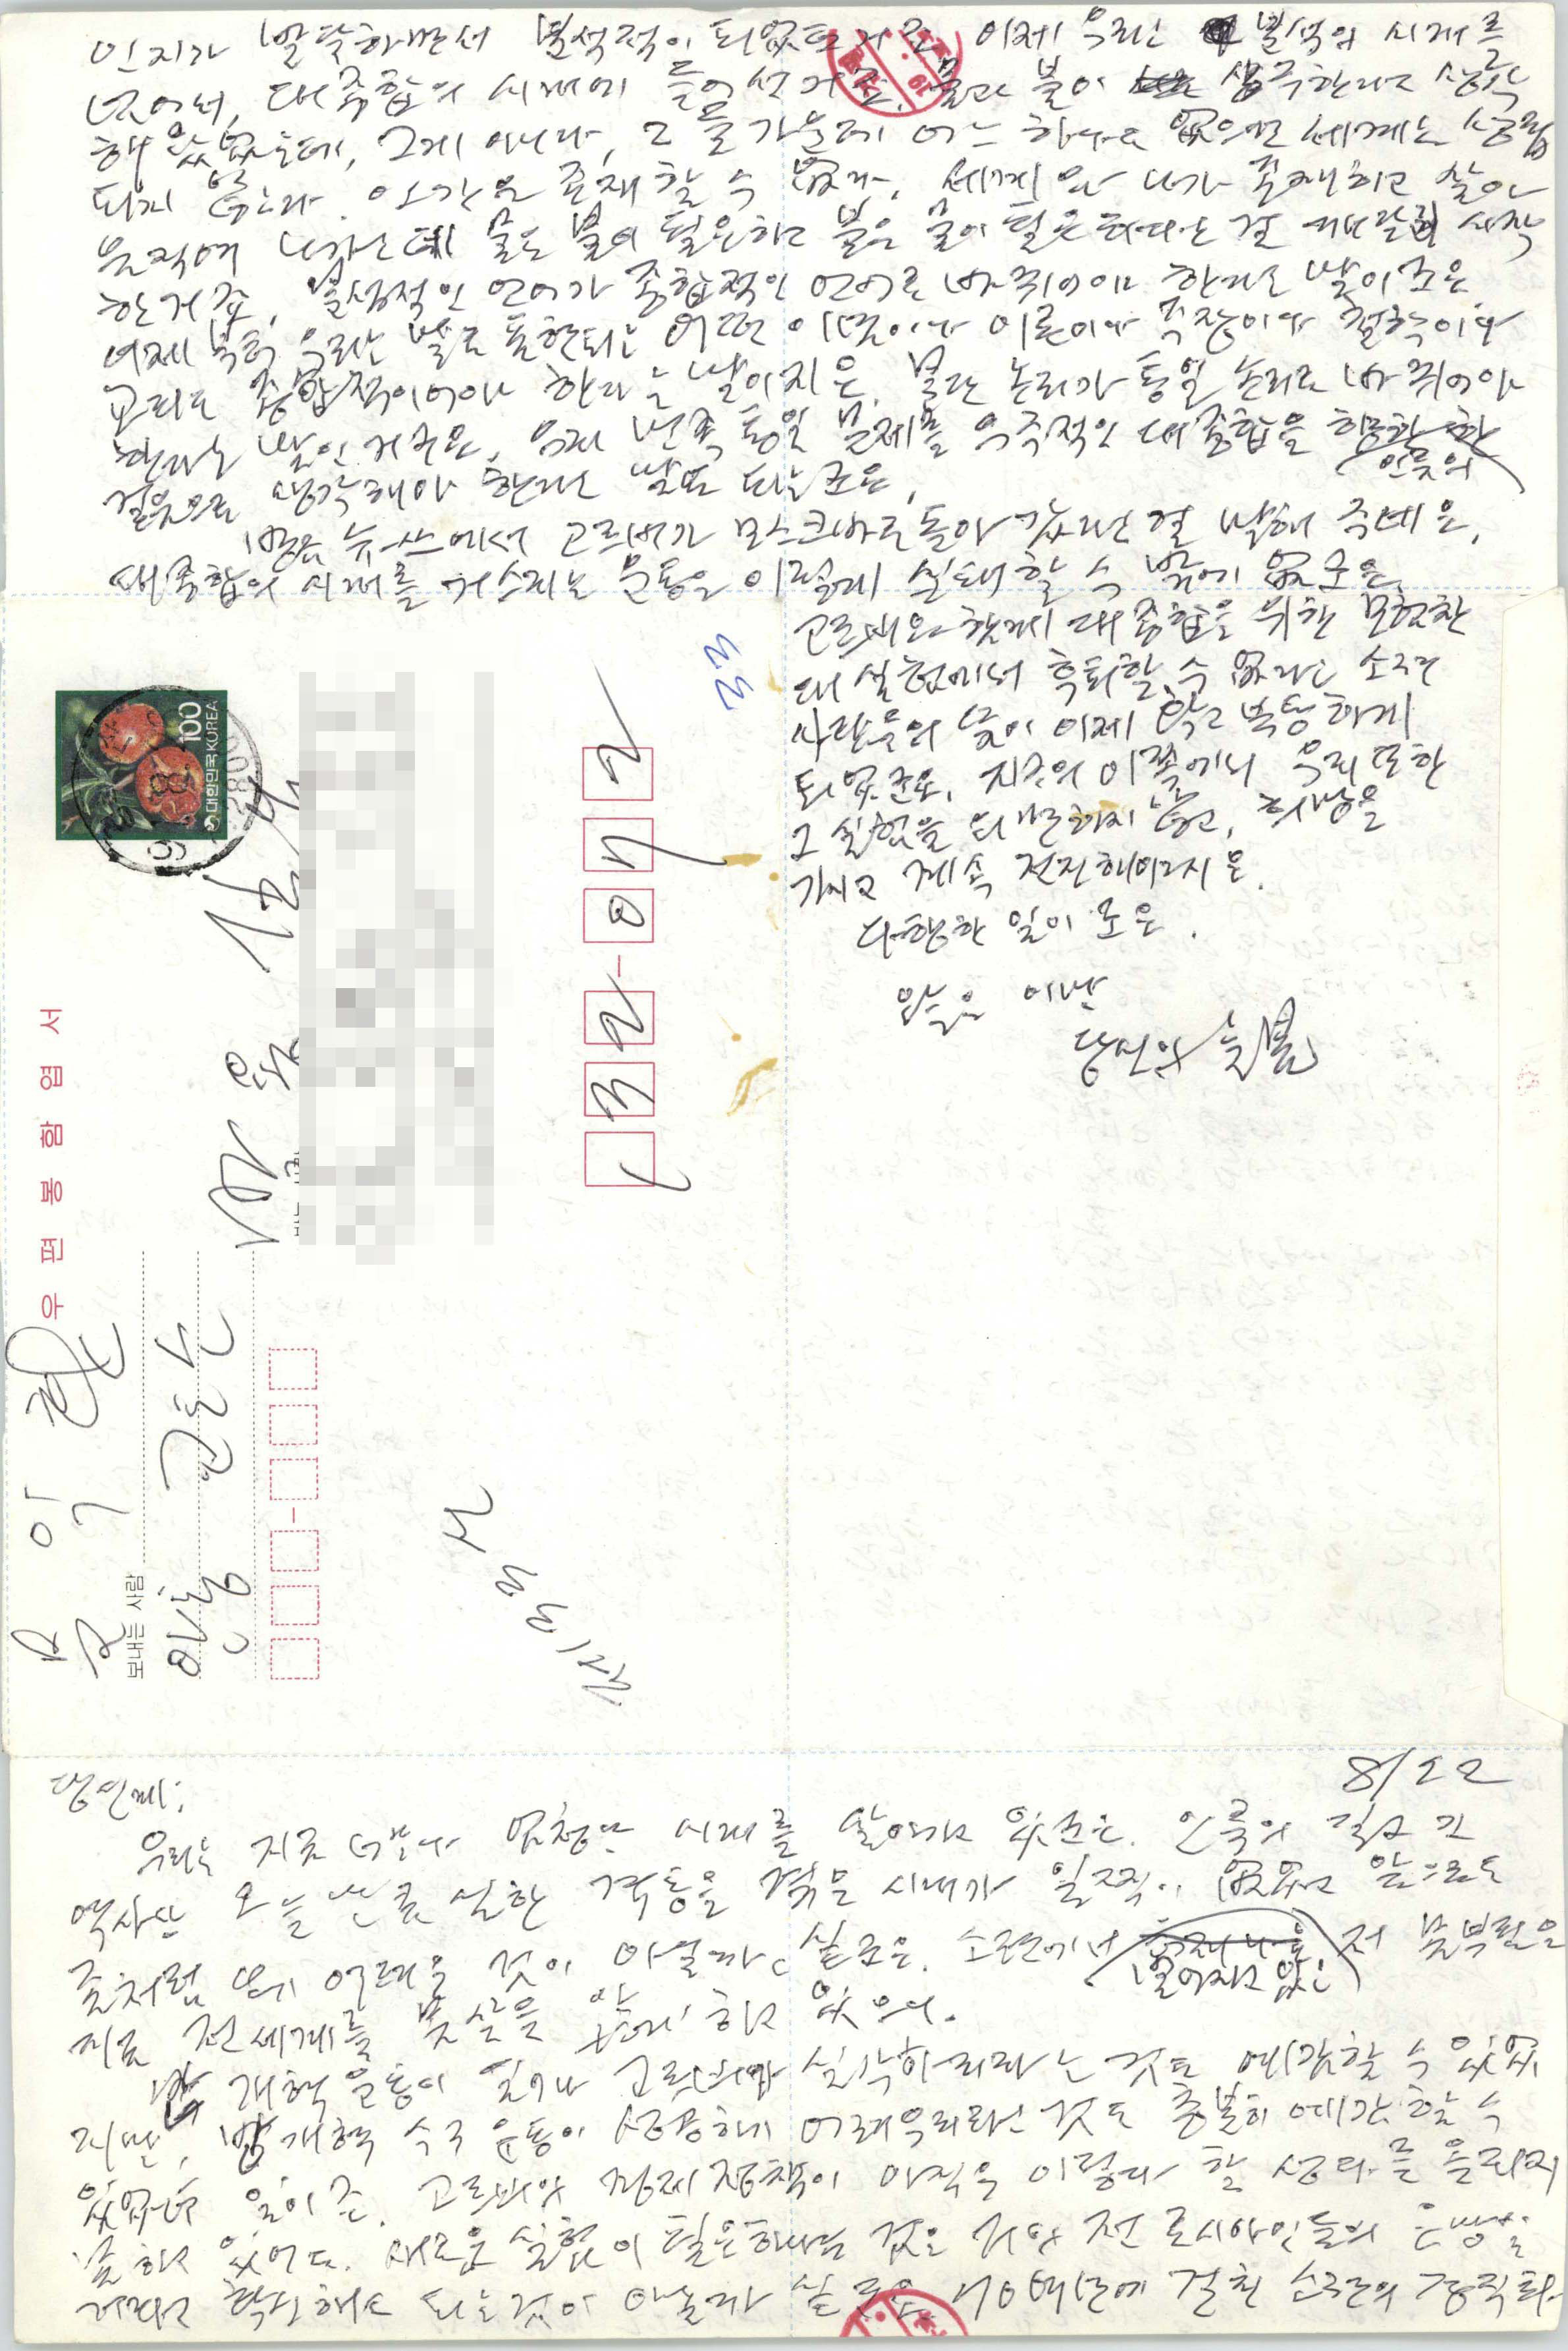 당신께:
8/22
우리는 지금 너무나 엄청난 시대를 살아가고 있군요. 인류의 길고 긴
역사상 오늘만큼 심한 격동을 겪은 시대가 일찍이 없었고 앞으로도
좀처럼 있기 어려운 것이 아닐까 싶군요. 소련에서 벌어지고 있는 저 몸부림은
지금 전세계를 몸살을 앓게 하고 있어요.
반개혁 운동이 일어나 고르비가 실각하리라는 것도 예감할 수 있었
지만, 반개혁 수구 운동이 성공하기 어려우리라는 것도 충분히 예감할 수
있었던 일이죠. 고르비의 경제정책이 아직은 이렇다 할 성과를 올리지
못하고 있어도. 새로운 실험이 필요하다는 것은 거의 전 로시아인들의 열망일
거라고 확신해도 되는 것이 아닐까 싶군요. 70여년에 걸친 소련의 경직화
인지가 발달하면서 분석적이 되었던 거고 이제 우리는 분석의 시대를
넘어서, 대종합의 시대에 들어선 거죠. 물과 불이 상극한다고 생각
해 왔었는데, 그게 아니다, 그 둘 가운데 어느 하나도 없으면 세계는 성립
되지 않는다. 인간은 존재할 수 없다. 세계와 내가 존재하고 살아
움직여 나가는데 물은 불이 필요하고 불은 물이 필요하다는 걸 깨닫기 시작
한 거죠. 분석적인 언어가 종합적인 언어로 바뀌어야 한다는 말이군요.
이제부터 우리는 말로 표현되는 어떤 이념이나 이론이나 주장이나 철학이나
교리도 종합적이어야 한다는 말이지요. 분단 논리가 통일 논리로 바뀌어야
한다는 말인 거구요. 우리 민족 통일 문제를 우주적인 대종합을 향한 인류의
걸음으로 생각해야 한다는 말도 되는군요.
방금 뉴-스에서 고르비가 모스크바로 돌아갔다는 걸 말해 주네요.
대종합의 시대를 거스리는 운동은 이렇게 실패할 수 밖에 없군요.
고르비와 함께 대종합을 위한 모험찬
대실험에서 후퇴할 수 없다는 소련
사람들의 뜻이 이제 확고부동하게
되었군요. 지구의 이쪽에서 우리 또한
그 실험을 외면하지 않고, 희망을
가지고 계속 전진해야지요.
다행한 일이군요.
오늘은 이만
당신의 늦봄
우편봉함엽서
대한민국 KOREA
100
보내는 사람
문익환
안동 교도소
박용길
132-072
33